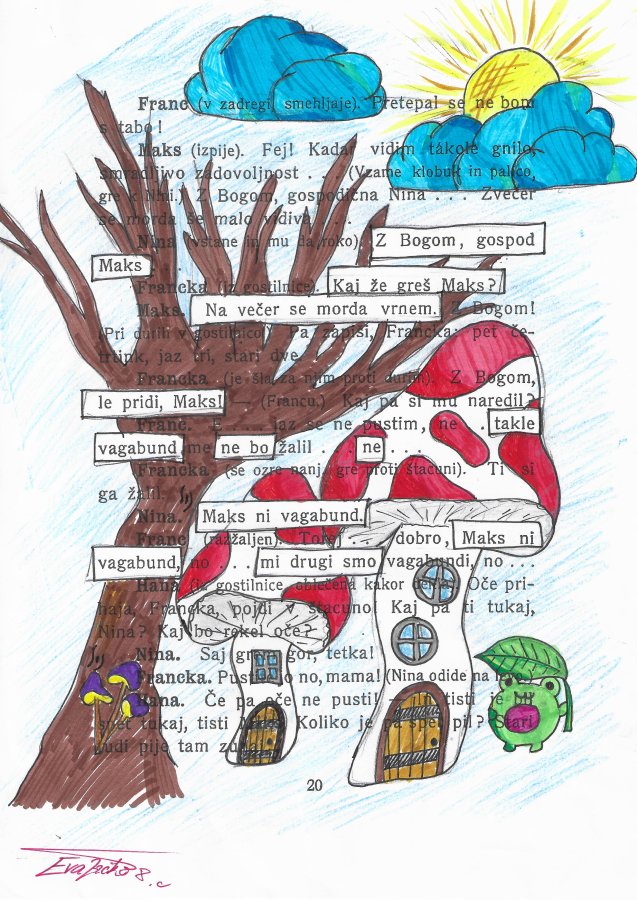 Franc (v zadregi, smehljaje). Pretepal se ne bom
s tabo!
Maks (izpije). Fej! Kadar vidim tákole gnilo,
smradljivo zadovoljnost . . . (Vzame klobuk in palico,
gre k Nini.) Z Bogom, gospodična Nina . . . Zvečer
se morda še malo vidiva . . .
Nina (vstane in mu da roko). Z Bogom, gospod
Maks . . .
Francka (iz gostilnice). Kaj že greš Maks?
Maks. Na večer se morda vrnem. Z Bogom!
(Pri durih v gostilnico) Pa zapiši, Francka: pet če-
trtink, jaz tri, stari dve.
Francka (je šla za njim proti durim). Z Bogom,
le pridi, Maks! — (Francu.) Kaj pa si mu naredil?
Franc. E . . . jaz se ne pustim, ne . . takle
vagabund me ne bo žalil . . . ne . . .
Francka (se ozre nanj, gre proti štacuni). Ti si
ga žalil.
Nina. Maks ni vagabund.
Franc (razžaljen). Torej . . dobro, Maks ni
vagabund, no . . . mi drugi smo vagabundi, no . . .
Hana (iz gostilnice oblečena kakor Oče pri-
haja, Francka, pojdi v štacuno! Kaj pa ti tukaj,
Nina? Kaj bo rekel oče?
Nina. Saj grem gor, tetka!
Francka. Pusti jo no, mama! (Nina odide na
Hana. Če pa oče ne pusti! tisti je bil
spet tukaj, tisti Koliko je pa spet pil? Stari
ludi pije tam zunaj.
20
Eva 8. c